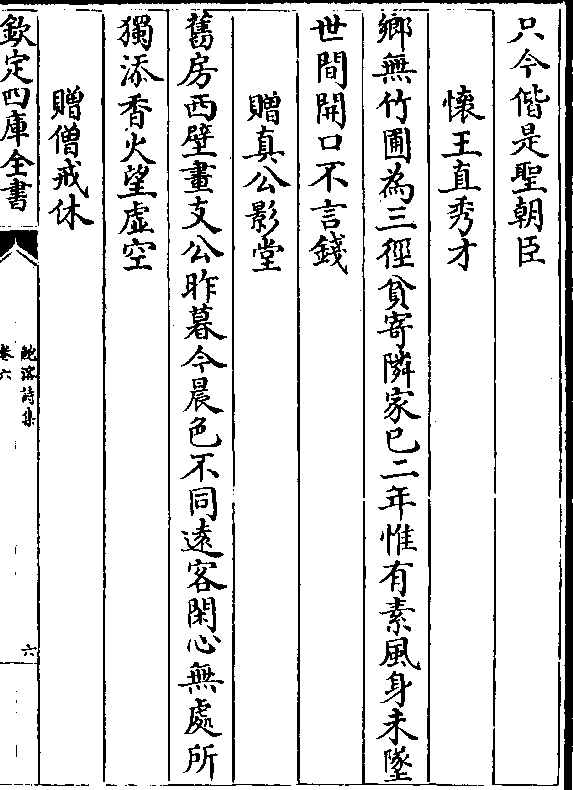 只今偕是聖朝臣
懐王直秀才
鄉無竹圃為三徑貧寄隣家已二年惟有素風身未墜
世間開口不言錢
贈真公影堂
舊房西壁畫支公昨暮今晨色不同遠客閑心無處所
獨添香火望虚空
贈僧戒休
欽定四庫全書
鮑溶詩集
卷六
六